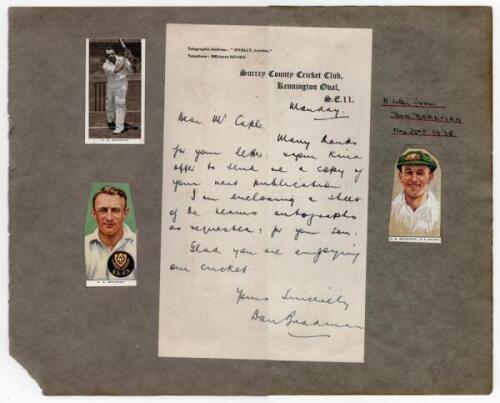 Telegraphic Address: "OVALLY, London."
Telephone: RELiance
Surrey County Cricket Club,
Kennington Oval,
S.E.11.
Monday.
Dear Mr
Many thanks
for your letter & your kind
offer to send me a copy of
your next publication
I am enclosing a sheet
of the teams autographs
as requested, for your son.
Glad you are enjoying
our cricket.
Yours Sincerely
Don Bradman
A letter from
DON BRADMAN
1938
D. G. BRADMAN
D. G. BRADMAN
D. G. BRADMAN